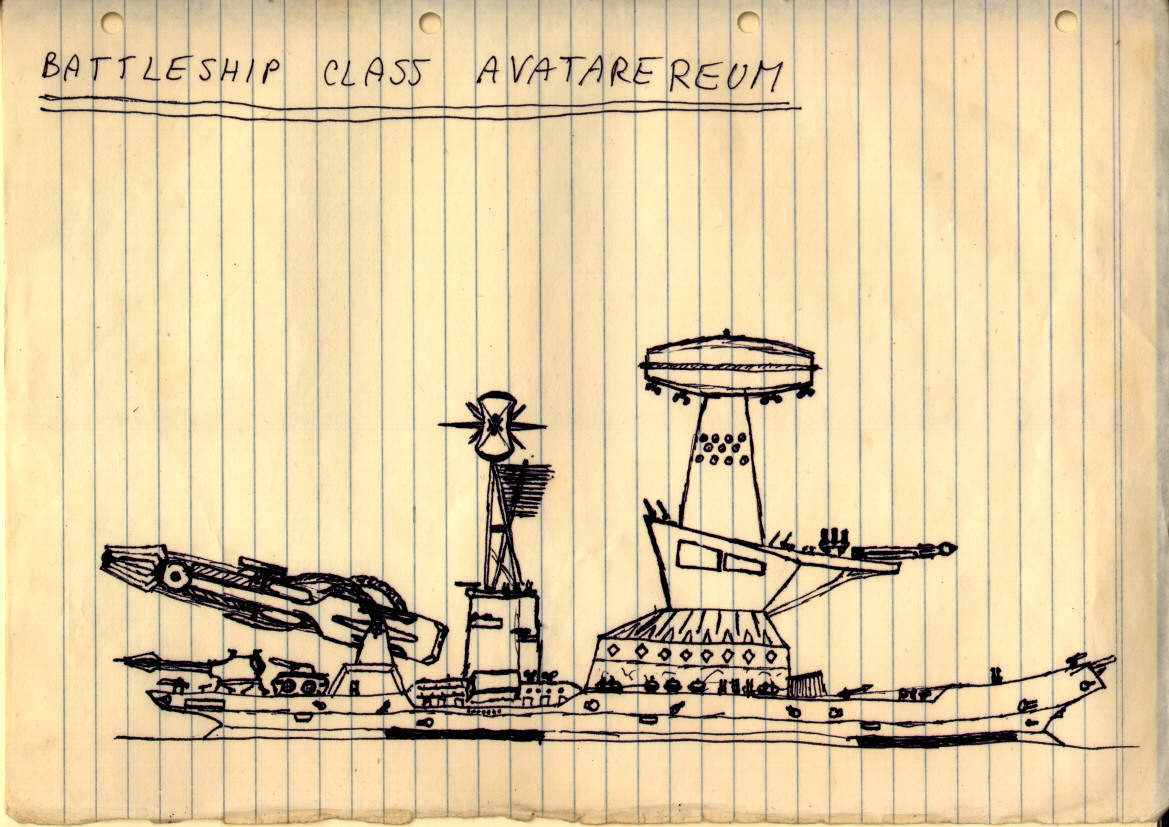 BATTLESHIP CLASS AVATAREREUM